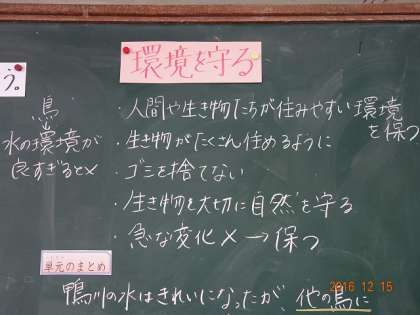 う。
環境を守る
鳥
水の環境が
良すぎると×
・人間や生き物たちが住みやすい環境
を保つ
・生き物がたくさん住めるように
・ゴミを捨てない
・生き物を大切に自然を守る
・急な変化×→保つ
単元のまとめ
鴨川の水はきれいになったが、他の鳥に
2016 12 15